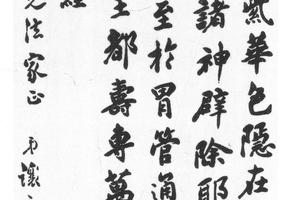 紫華色隱在
諸神辟除耶
至於胃管通
王都壽專萬
經
兄法家正 弟